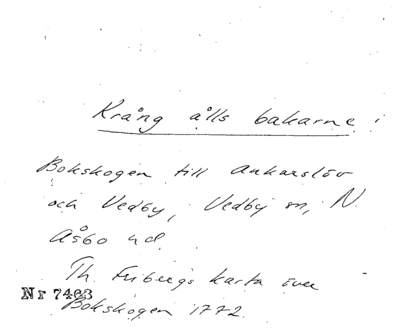 Krång ålls bakarne i
Bokskogen till Ankarslöv
och Vedby, Vedby sn, N.
Åsbo hd.
Th. Fribergs karta över
Nr 7463
Bokskogen 1772.